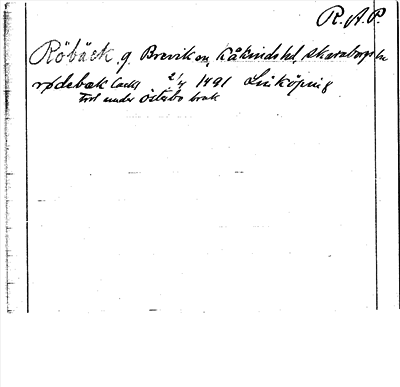 R.A.P.
Röbäck g. Breviks sn, Kåkinds hd, Skaraborgs län
rødebæk (ack) 2/4 1491 Linköping
torl under Österbo bruk